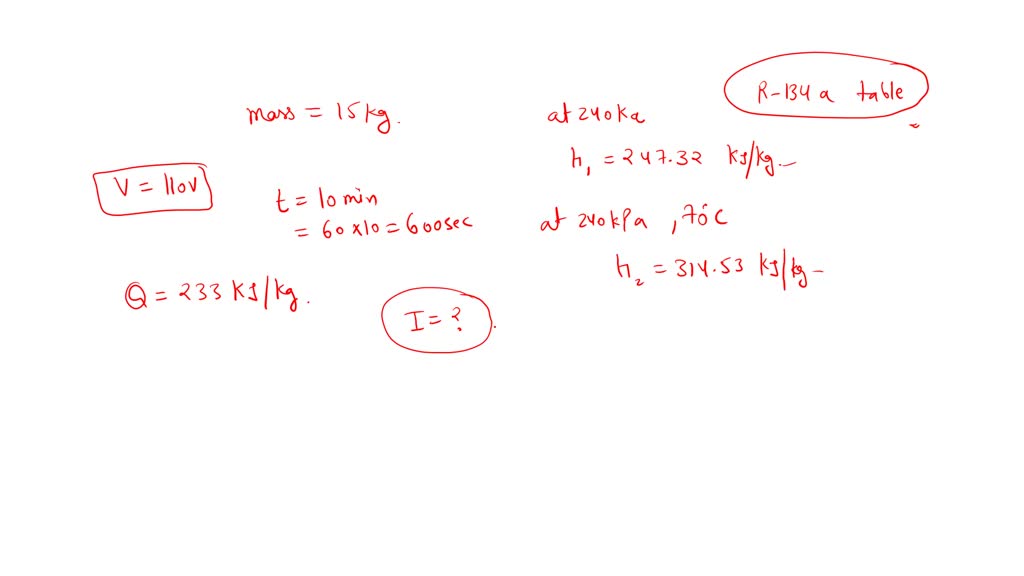 R-134a table
mass = 15kg.
at 240ka
h₁ = 247.32 KJ/kg
V = 110V
t = 10min
= 60×10 = 600sec
at 240kPa , 70°C
h₂ = 314.53 KJ/kg
Q = 233 KJ/kg.
I = ?